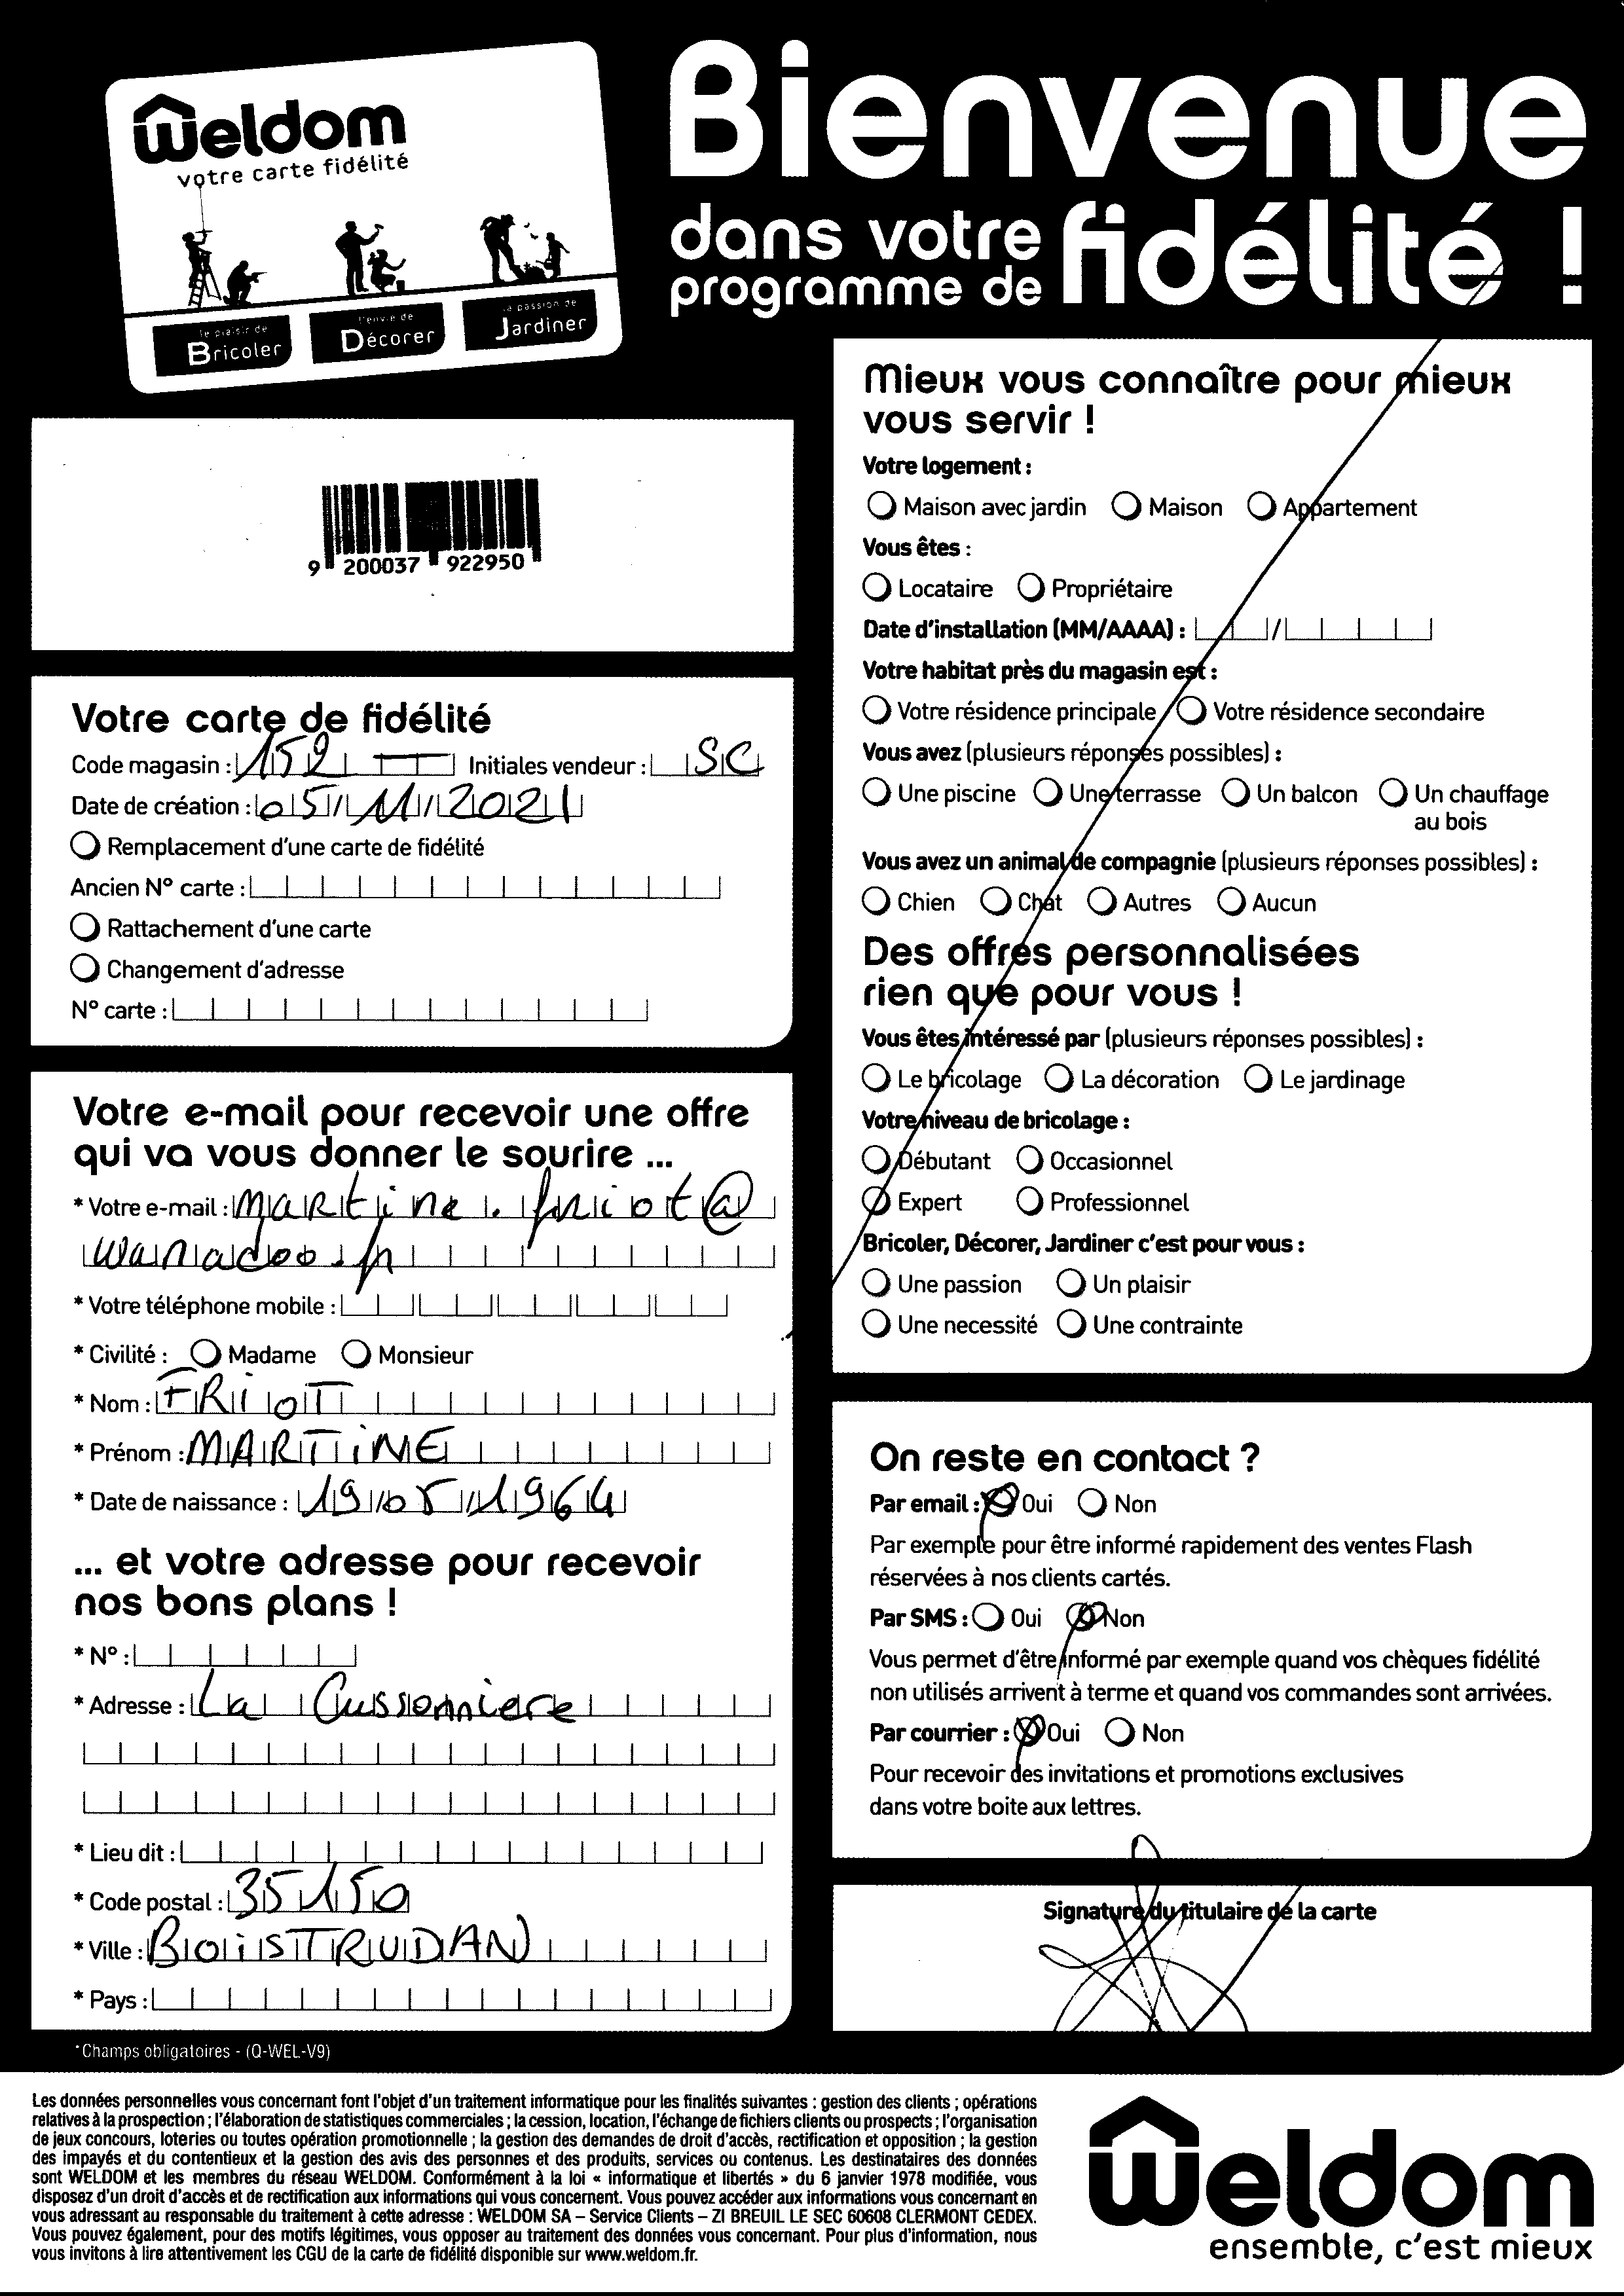 Weldom
votre carte fidélité
le plaisir de
Bricoler
l'envie de
Décorer
la passion de
Jardiner
Bienvenue
dans votre
programme de fidélité !
9 200037 922950
Votre carte de fidélité
Code magasin : 152 Initiales vendeur : SC
Date de création : 05/11/2021
Remplacement d'une carte de fidélité
Ancien N° carte :
Rattachement d'une carte
Changement d'adresse
N° carte :
Votre e-mail pour recevoir une offre
qui va vous donner le sourire ...
* Votre e-mail : martine.friot@
wanadoo.fr
* Votre téléphone mobile :
* Civilité : Madame Monsieur
* Nom : FRIOT
* Prénom : MARTINE
* Date de naissance : 19/05/1964
... et votre adresse pour recevoir
nos bons plans !
* N° :
* Adresse : La Cussonniere
* Lieu dit :
* Code postal : 35150
* Ville : BOISTRUDAN
* Pays :
*Champs obligatoires - (Q-WEL-V9)
Mieux vous connaître pour mieux
vous servir !
Votre logement :
Maison avec jardin Maison Appartement
Vous êtes :
Locataire Propriétaire
Date d'installation (MM/AAAA) : /
Votre habitat près du magasin est :
Votre résidence principale Votre résidence secondaire
Vous avez (plusieurs réponses possibles) :
Une piscine Une terrasse Un balcon Un chauffage
au bois
Vous avez un animal de compagnie (plusieurs réponses possibles) :
Chien Chat Autres Aucun
Des offres personnalisées
rien que pour vous !
Vous êtes intéressé par (plusieurs réponses possibles) :
Le bricolage La décoration Le jardinage
Votre niveau de bricolage :
Débutant Occasionnel
Expert Professionnel
Bricoler, Décorer, Jardiner c'est pour vous :
Une passion Un plaisir
Une necessité Une contrainte
On reste en contact ?
Par email : Oui Non
Par exemple pour être informé rapidement des ventes Flash
réservées à nos clients cartés.
Par SMS : Oui Non
Vous permet d'être informé par exemple quand vos chèques fidélité
non utilisés arrivent à terme et quand vos commandes sont arrivées.
Par courrier : Oui Non
Pour recevoir des invitations et promotions exclusives
dans votre boite aux lettres.
Signature du titulaire de la carte
Les données personnelles vous concernant font l'objet d'un traitement informatique pour les finalités suivantes : gestion des clients ; opérations
relatives à la prospection ; l'élaboration de statistiques commerciales ; la cession, location, l'échange de fichiers clients ou prospects ; l'organisation
de jeux concours, loteries ou toutes opération promotionnelle ; la gestion des demandes de droit d'accès, rectification et opposition ; la gestion
des impayés et du contentieux et la gestion des avis des personnes et des produits, services ou contenus. Les destinataires des données
sont WELDOM et les membres du réseau WELDOM. Conformément à la loi « informatique et libertés » du 6 janvier 1978 modifiée, vous
disposez d'un droit d'accès et de rectification aux informations qui vous concernent. Vous pouvez accéder aux informations vous concernant en
vous adressant au responsable du traitement à cette adresse : WELDOM SA – Service Clients – ZI BREUIL LE SEC 60608 CLERMONT CEDEX.
Vous pouvez également, pour des motifs légitimes, vous opposer au traitement des données vous concernant. Pour plus d'information, nous
vous invitons à lire attentivement les CGU de la carte de fidélité disponible sur www.weldom.fr.
Weldom
ensemble, c'est mieux